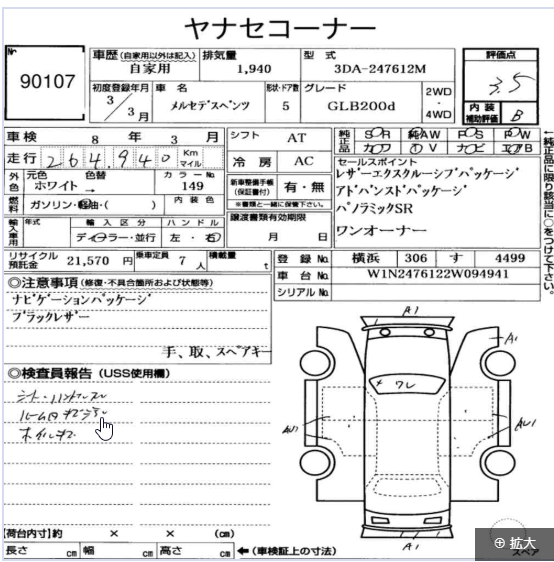 ヤナセコーナー
No.
90107
車歴(自家用以外は記入)
自家用
排気量
1,940
型 式
3DA-247612M
評価点
3.5
初度登録年月
3/3月
車 名
メルセデスベンツ
形状・ドア数
5
グレード
GLB200d
2WD
・
4WD
内 装
補助評価
B
車検
8 年 3 月
シフト
AT
純正品
SR
純AW
PS
PW
カワ
TV
ナビ
エアB
走行
264,940 Km
マイル
冷 房
AC
セールスポイント
レザーエクスクルーシブパッケージ
アドバンストパッケージ
パノラミックSR
ワンオーナー
←純正品に限り該当に○をつけて下さい。
外色
元色
ホワイト
色替
→
カラーNo.
149
新車整備手帳
(保証書付)
有・無
※書類と一緒に保管下さい。
燃料
ガソリン・軽油・( )
内 装 色
譲渡書類有効期限
月 日
輸入車用
年式
輸 入 区 分
ディーラー・並行
ハ ン ド ル
左・右
リサイクル
預託金
21,570 円
乗車定員
7 人
積載量
t
登 録 No.
横浜 306 す 4499
車 台 No.
W1N2476122W094941
シリアル No.
◎注意事項(修復・不具合箇所および状態等)
ナビゲーションパッケージ
ブラックレザー
手、取、スペアキー
◎検査員報告(USS使用欄)
A1
A1
ワレ
AU1
A1
【荷台内寸】約 × × (cm)
長さ cm 幅 cm 高さ cm ←(車検証上の寸法)
スペア
⊕ 拡大